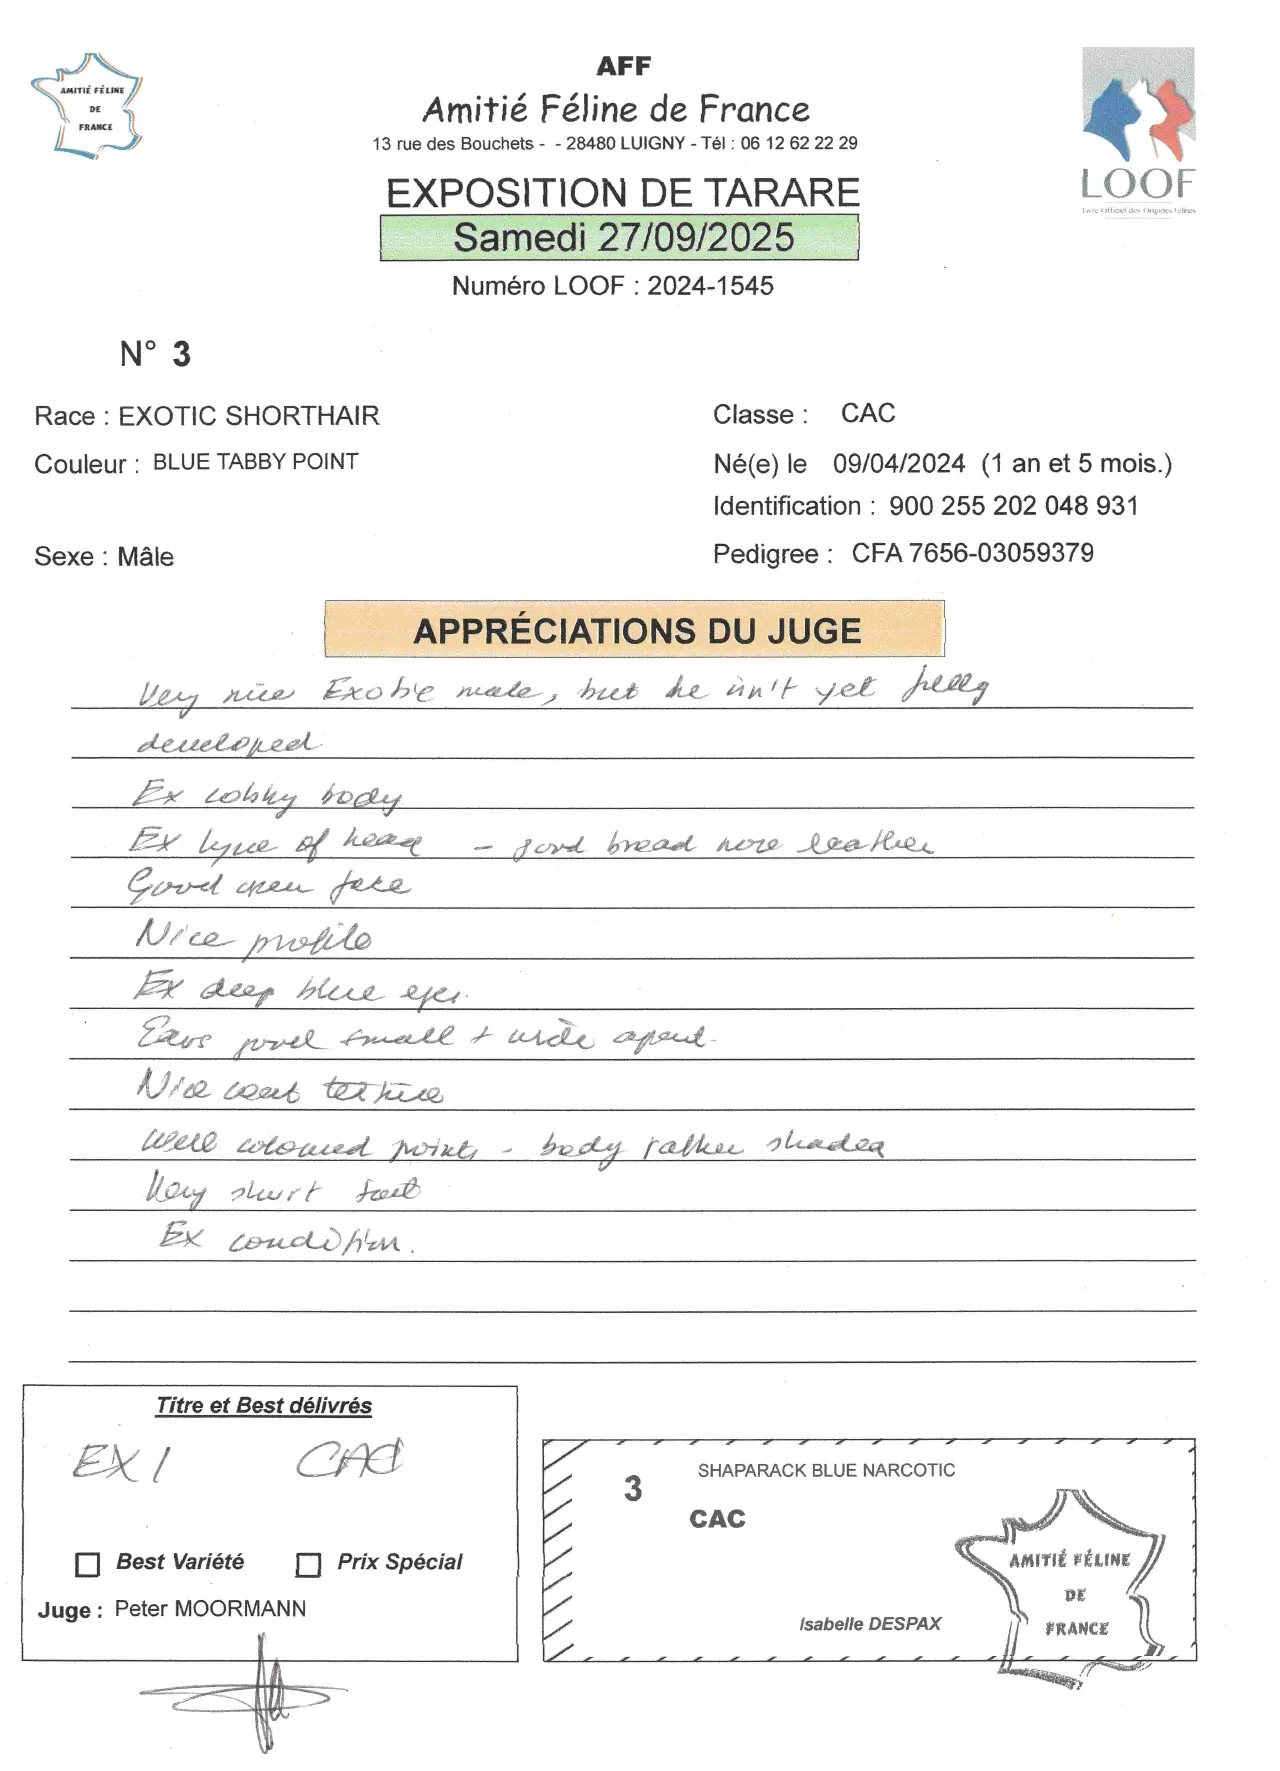 AMITIÉ FÉLINE
DE
FRANCE
AFF
Amitié Féline de France
13 rue des Bouchets - - 28480 LUIGNY - Tél : 06 12 62 22 29
LOOF
Livre Officiel des Origines Félines
EXPOSITION DE TARARE
Samedi 27/09/2025
Numéro LOOF : 2024-1545
N° 3
Race : EXOTIC SHORTHAIR
Classe : CAC
Couleur : BLUE TABBY POINT
Né(e) le 09/04/2024 (1 an et 5 mois.)
Identification : 900 255 202 048 931
Sexe : Mâle
Pedigree : CFA 7656-03059379
APPRÉCIATIONS DU JUGE
Very nice Exotic male, but he isn't yet fully
developed
Ex cobby body
Ex type of head - good broad nose leather
Good open face
Nice profile
Ex deep blue eyes.
Ears good small + wide apart.
Nice coat texture
Well coloured points - body rather shaded
Very short
Ex condition.
Titre et Best délivrés
EX 1 CAC
Best Variété Prix Spécial
Juge : Peter MOORMANN
3
SHAPARACK BLUE NARCOTIC
CAC
Isabelle DESPAX
AMITIÉ FÉLINE
DE
FRANCE